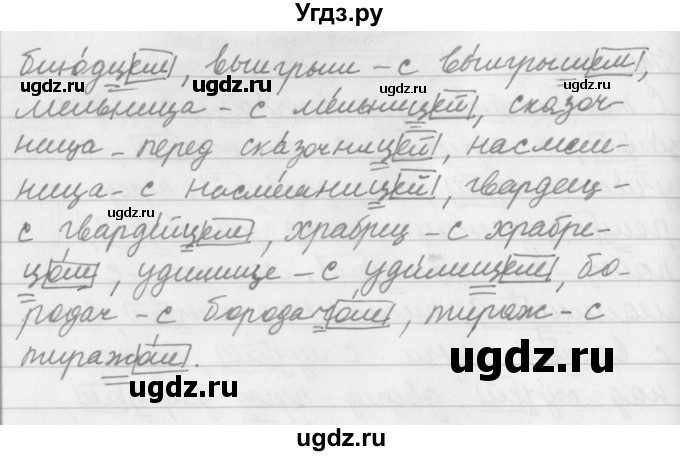 Угдз.ру
блюдцем, выигрыш – с выигрышем,
мельница – с мельницей, сказоч-
ница – перед сказочницей, насмеш-
ница – с насмешницей, гвардеец –
с гвардейцем, храбрец – с храбре-
цом, удилище – с удилищем, бо-
родач – с бородачом, тираж – с
тиражом.
ugdz.ru
ugdz.ru
ugdz.ru
ugdz.ru
ugdz.ru
ugdz.ru
ugdz.ru
ugdz.ru
ugdz.ru